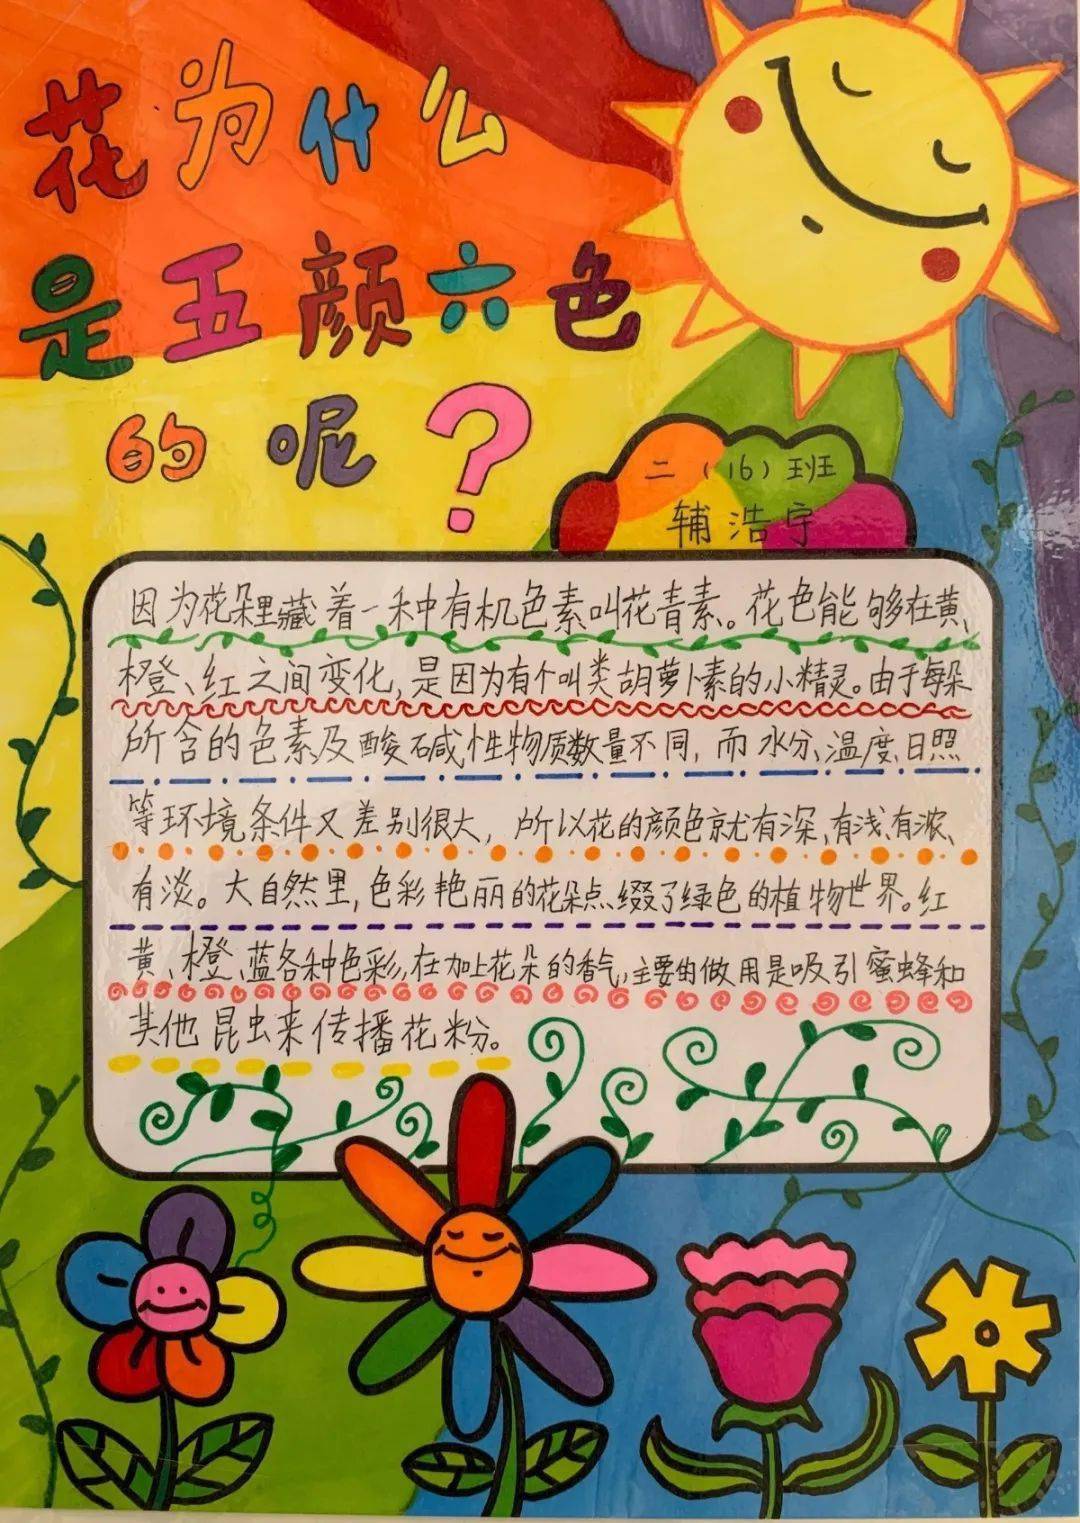 花为什么
是五颜六色
的呢?
二(16)班
辅浩宇
因为花朵里藏着一种有机色素叫花青素。花色能够在黄、
橙、红之间变化,是因为有个叫类胡萝卜素的小精灵。由于每朵
所含的色素及酸碱性物质数量不同,而水分、温度、日照
等环境条件又差别很大,所以花的颜色就有深、有浅、有浓、
有淡。大自然里,色彩艳丽的花朵点缀了绿色的植物世界。红
黄、橙、蓝各种色彩,在加上花朵的香气,主要的做用是吸引蜜蜂和
其他昆虫来传播花粉。